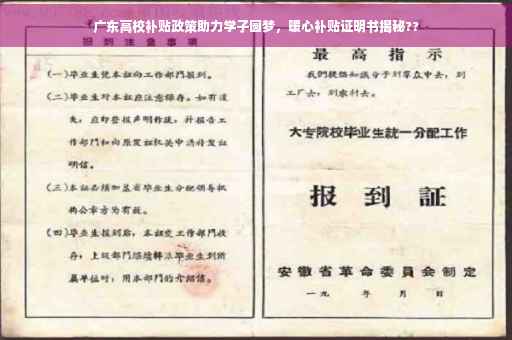 广东高校补贴政策助力学子圆梦，暖心补贴证明书揭秘??
报到注意事项
(一)毕业生凭本证向工作部门报到。
(二)毕业生对本证应注意保存。如有遗
失，应即登报声明作废，并报告工
作部门和向原发证机关申请补发证
明信。
(三)本证必须加盖省毕业生分配领导机
构公章方为有效。
(四)毕业生报到后，本证交工作部门收
存；上级部门继续转派毕业生到所
属单位时，用本部门的介绍信。
最高指示
我们提倡知识分子到群众中去，到
工厂去，到农村去。
大专院校毕业生統一分配工作
报到証
安徽省革命委員会制定
一九 年 月 日